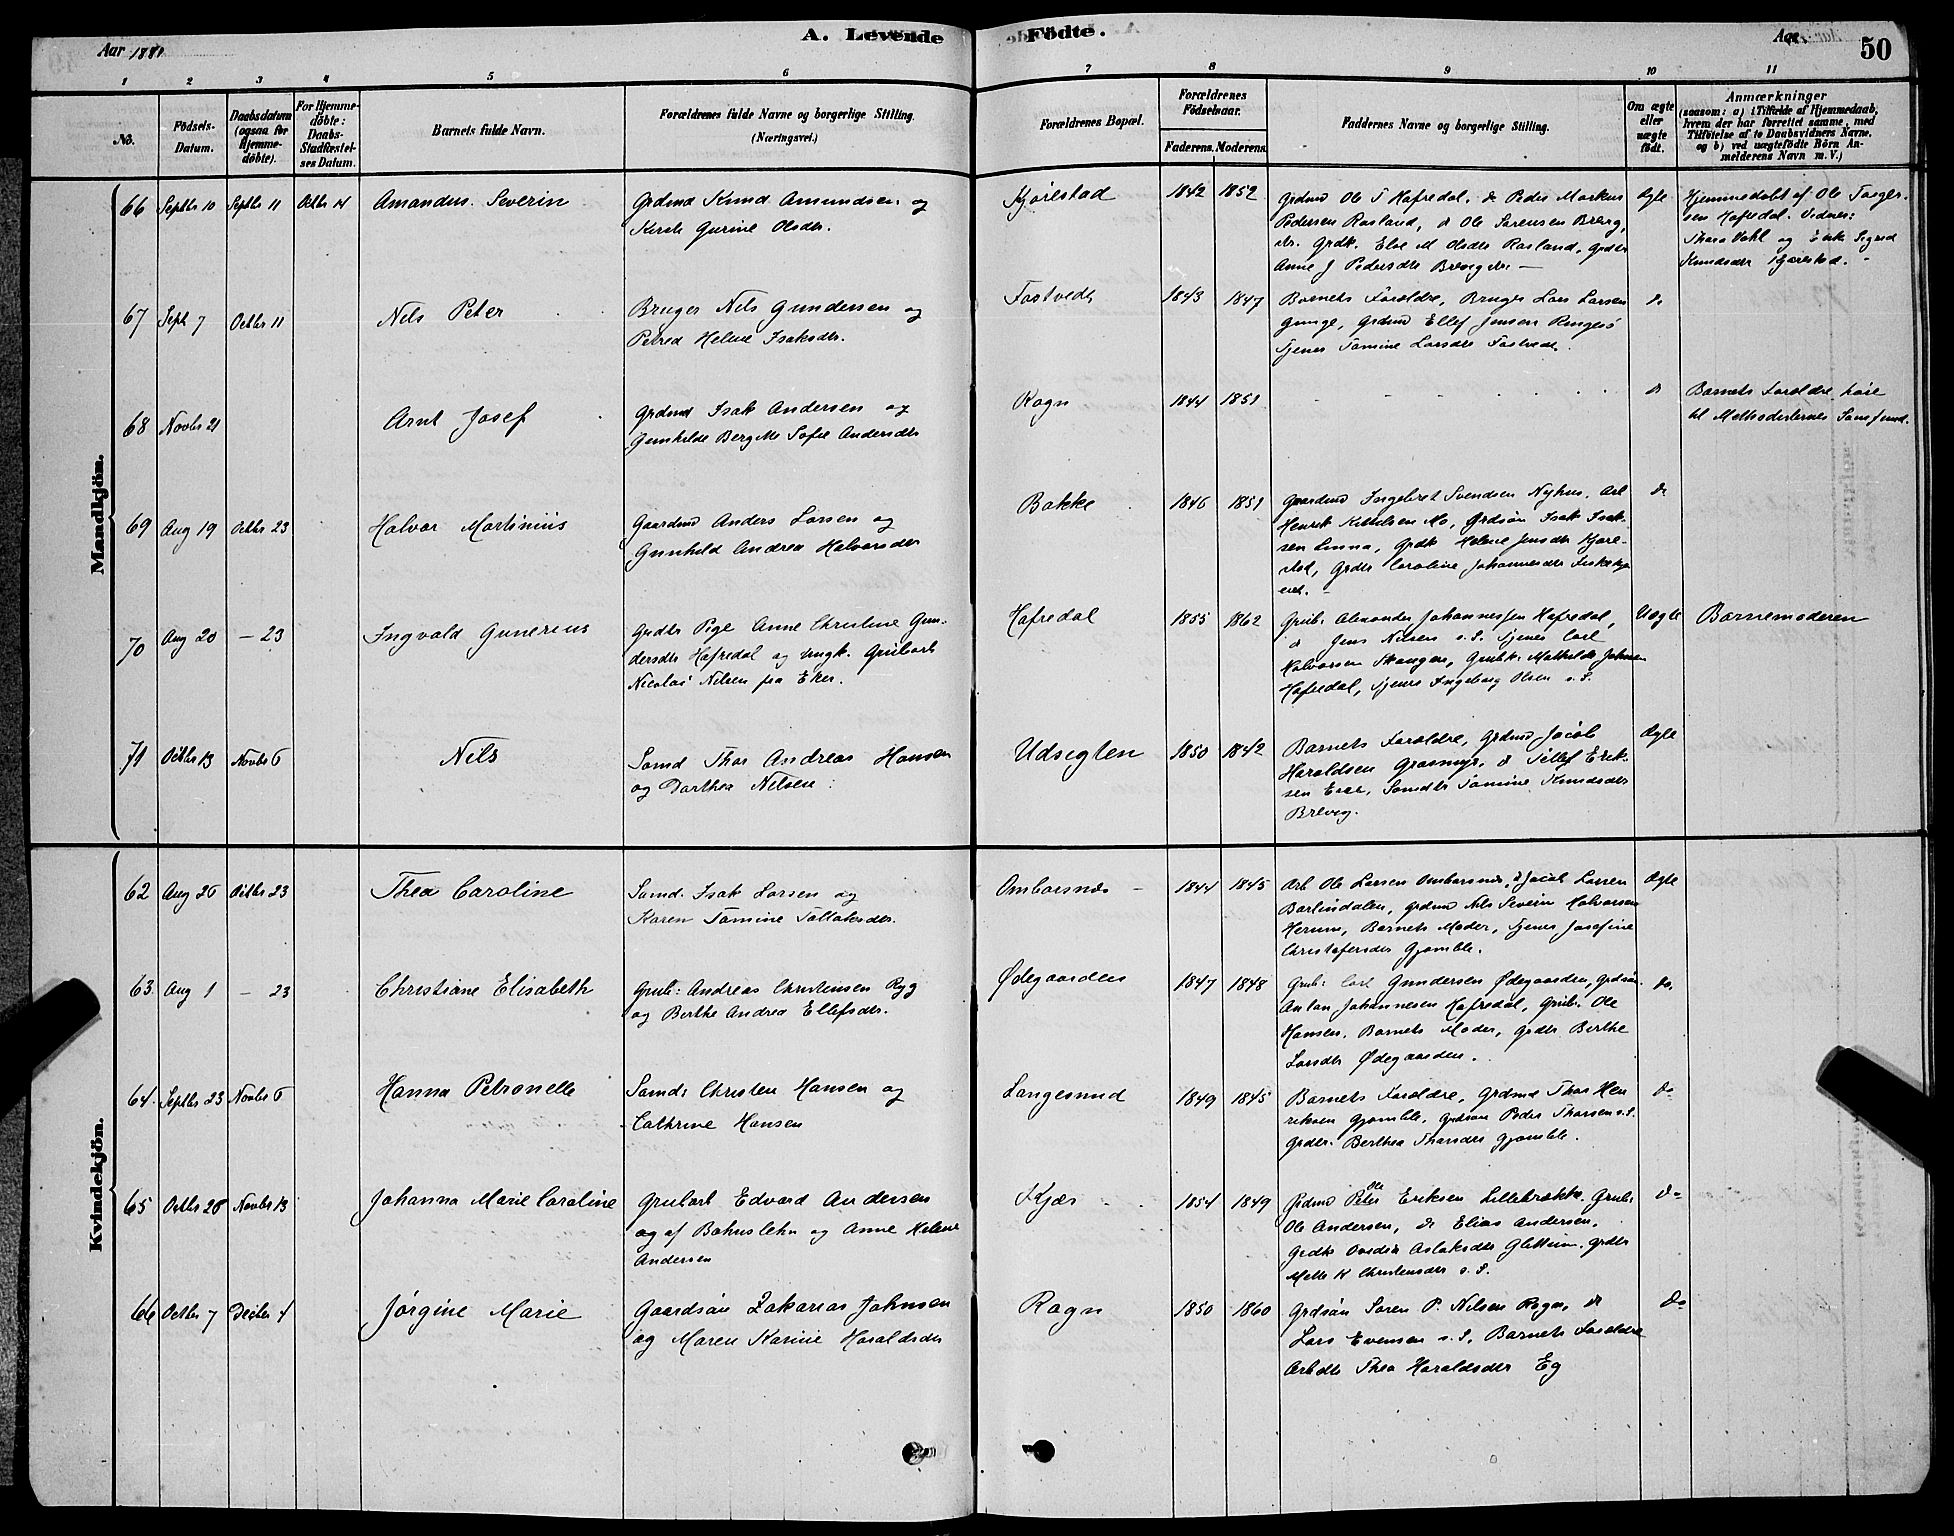 Aar 1881
A. Levende
Fødte.
Aar
50
1
2
3
4
5
6
7
8
9
10
11
No.
Fødsels-
Datum.
Daabsdatum
(ogsaa for
Hjemme-
døbte).
For Hjemme-
døbte:
Daabs-
Stadfæstel-
ses Datum.
Barnets fulde Navn.
Forældrenes fulde Navne og borgerlige Stilling.
(Næringsvei.)
Forældrenes Bopæl.
Forældrenes
Fødselsaar.
Faderens.
Moderens.
Faddernes Navne og borgerlige Stilling.
Om ægte
eller
uægte
født.
Anmærkninger
(saasom: a) i Tilfælde af Hjemmedaab,
hvem der har forrettet samme, med
Tilføielse af to Daabsvidners Navne,
og b) ved uægtefødte Børn An-
melderens Navn m. V.)
Mandkjön.
66
Septbr 10
Septbr 11
Octbr 14
Amandus Severin
Grdmd Knud Amundsen og
Kirsti Gurine Olsdr.
Kjørestad
1842
1852
Grdmd Ole T Hafredal, do Peder Markus
Pedersen Rosland, do Ole Sørensen Brevig,
Grdk. Else M Olsdtr Rosland, Grdtr
Anne J Pedersdtr
Ægte
Hjemmedøbt af Ole Torger-
sen Hafredal. Vidner:
Thore Dahl og Enke Sigrid
Knudsdtr Kjørestad.
67
Septr 7
Octbr 11
Nils Peter
Bruger Nils Gundersen og
Petrea Helene Isaksdr.
Tostvedt
1843
1847
Barnets Forældre, Bruger Lars Larsen
Grdmd Ellef Jensen
Tjener Tomine Larsdtr Tostvedt.
do
68
Novbr 21
Arnt Josef
Grdmd Isak Andersen og
Gunhilde Bergitte Sofie Andersdtr
Rogn
1844
1851
do
Barnets Forældre høre
til Methodisternes Samfund.
69
Aug 19
Octbr 23
Halvor Martinius
Gaardmd Anders Larsen og
Gunhild Andrea Halvorsdtr
Bakke
1846
1851
Gaardmd Ingebret Svendsen Nyhus, Arb
Henrik Kittelsen Mo, Grdsøn Isak Isak-
sen Linna, Grdk Helene Jensdtr Kjøre-
stad, Grdtr Caroline Johannesdtr
do
70
Aug 20
- 23
Ingvald Gunerius
Grdtr Pige Anne Christine Gun-
dersdtr Hafredal og Ungk. Grubarb
Nicolai Nilsen fra Eker.
Hafredal
1855
1862
Grub: Alexander Johannessen Hafredal,
do Jens Nilsen s.S. Tjener Carl
Halvorsen Skaugen, Grubk: Mathilde Johnsen
Hafredal, Tjener Ingeborg Olsen s.S.
Uægte
Barnemoderen
71
Octbr 13
Novbr 6
Nils
Sømd Thor Andreas Hansen
og Dorthea Nilsen
Udsigten
1850
1842
Barnets Forældre, Grdmd Jacob
Haraldsen Grasmyr, do Tellef Erik-
sen Exer, Sømdtr Tomine Knudsdtr
Brevig.
Ægte
Kvindekjön.
62
Aug 26
Octbr 23
Thea Caroline
Sømd. Isak Larsen og
Karen Tomine Tollaksdr.
Omborsnes
1844
1845
Arb Ole Larsen Omborsnes, do Jacob Larsen
Barlindalen, Grdmd Nils Severin Halvorsen
Herum, Barnets Moder, Tjener Josefine
Christofersdtr Gjømble.
Ægte
63
Aug 1
- 23
Christiane Elisabeth
Grub: Andreas Christensen Ryg
og Berthe Andrea Ellefsdtr.
Ødegaarden
1847
1848
Grub: Carl Gundersen Ødegaarden, Grdsøn
Anton Johannesen Hafredal, Grub: Ole
Hansen, Barnets Moder, Grdtr Berthe
Larsdtr Ødegaarden.
do.
64.
Septbr 23
Novbr 6
Hanna Petronelle
Sømd: Christen Hansen og
Cathrine Hansen
Langesund
1849
1845
Barnets Forældre, Grdmd Thor Hen
riksen Gjømble, Grdsøn Peder Thorsen s.S.
Grdtr. Berthea Thorsdtr Gjømble.
do
65
Octbr 28
Novbr 13
Johanna Marie Caroline
Grubarb Edvard Andersen
og af Bohuslehn og Anne Helene
Andersen
Kjær
1854
1849
Grdmd Peter Eriksen Lillebække, Grub:
Ole
Ole Andersen, do Elias Andersen,
Grdk Aslaksdtr Glittum, Grdtr
Mette K Christensdtr s.S.
do
66
Octbr 7
Decbr 4
Jørgine Marie
Gaardsøn Zakarias Johnsen
og Maren Karine Haraldsdtr
Rogn
1850
1860
Grdsøn Søren P. Nilsen Rogn, do
Lars Evensen s.S. Barnets Forældre
Arbdtr Thea Haraldsdtr Eg
do